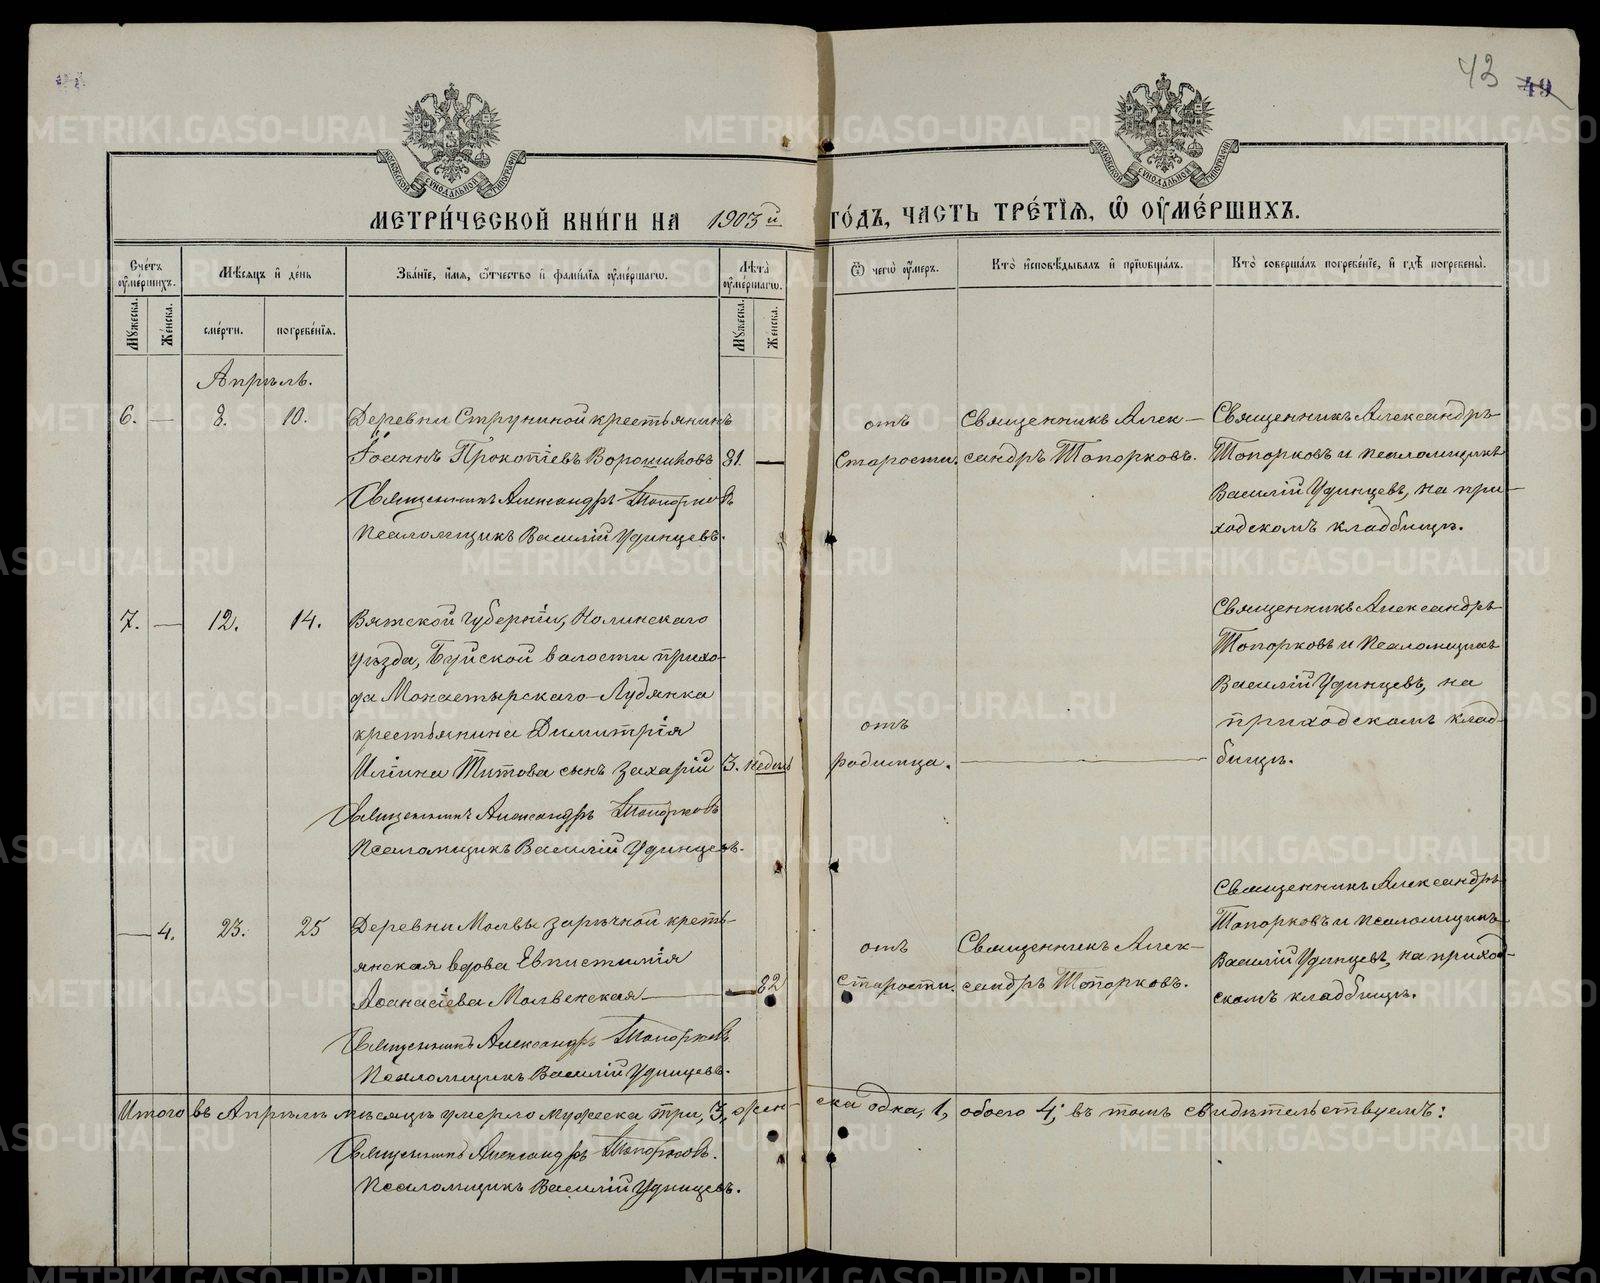 43
49
МЕТРИ́ЧЕСКОЙ КНИ́ГИ НА 1903й ГО́ДЪ, ЧАСТЬ ТРЕ́ТІѦ, Ѡ ОУ҆МЕ́РШИХЪ.
МОСКОВСКОЙ СѴНОДАЛЬНОЙ ТИПОГРАФІИ
МОСКОВСКОЙ СѴНОДАЛЬНОЙ ТИПОГРАФІИ
Сче́тъ оу҆ме́ршихъ.
Мꙋжеска.
Же́нска.
Мѣ́сѧцъ и҆ де́нь
сме́рти.
погребе́нїѧ.
Зва́нїе, и҆́мѧ, ѻ҆́тчество и҆ фами́лїѧ оу҆ме́ршагѡ.
Лѣ́та оу҆ме́ршагѡ.
Мꙋжеска.
Же́нска.
Ѿ чегѡ̀ оу҆́меръ.
Кто̀ и҆сповѣ́дывалъ и҆ прїѡбща́лъ.
Кто̀ соверша́лъ погребе́нїе, и҆ гдѣ̀ погребены̀.
Апрѣль.
6. — 8. 10. Деревни Струниной крестьянинъ
Іоаннъ Прокопіевъ Ворошиловъ 81. —
Священникъ Александръ Топорковъ
Псаломщикъ Василій Удинцевъ.
отъ
старости.
Священникъ Алек-
сандръ Топорковъ.
Священникъ Александръ
Топорковъ и псаломщикъ
Василій Удинцевъ, на при-
ходскомъ кладбищѣ.
7. — 12. 14. Вятской губерніи, Нолинскаго
уѣзда, Буйской волости прихо-
да Монастырскаго-Лудянка
крестьянина Димитрія
Иліина Титова сынъ Захарій 3. недѣль
Священникъ Александръ Топорковъ
Псаломщикъ Василій Удинцевъ.
отъ
родимца. —
Священникъ Александръ
Топорковъ и псаломщикъ
Василій Удинцевъ, на
приходскомъ клад-
бищѣ.
— 4. 23. 25 Деревни Молвы заручной кресть-
янская вдова Евпистимія
Аѳанасіева Молвенская — — 82
Священникъ Александръ Топорковъ
Псаломщикъ Василій Удинцевъ.
отъ
старости.
Священникъ Алек-
сандръ Топорковъ.
Священникъ Александръ
Топорковъ и псаломщикъ
Василій Удинцевъ, на приход-
скомъ кладбищѣ.
Итого въ Апрѣлѣ мѣсяцѣ умерло мужеска три, 3, жен-ска одна, 1, обоего 4; въ томъ свидѣтельствуемъ:
Священникъ Александръ Топорковъ.
Псаломщикъ Василій Удинцевъ.
METRIKI.GASO-URAL.RU